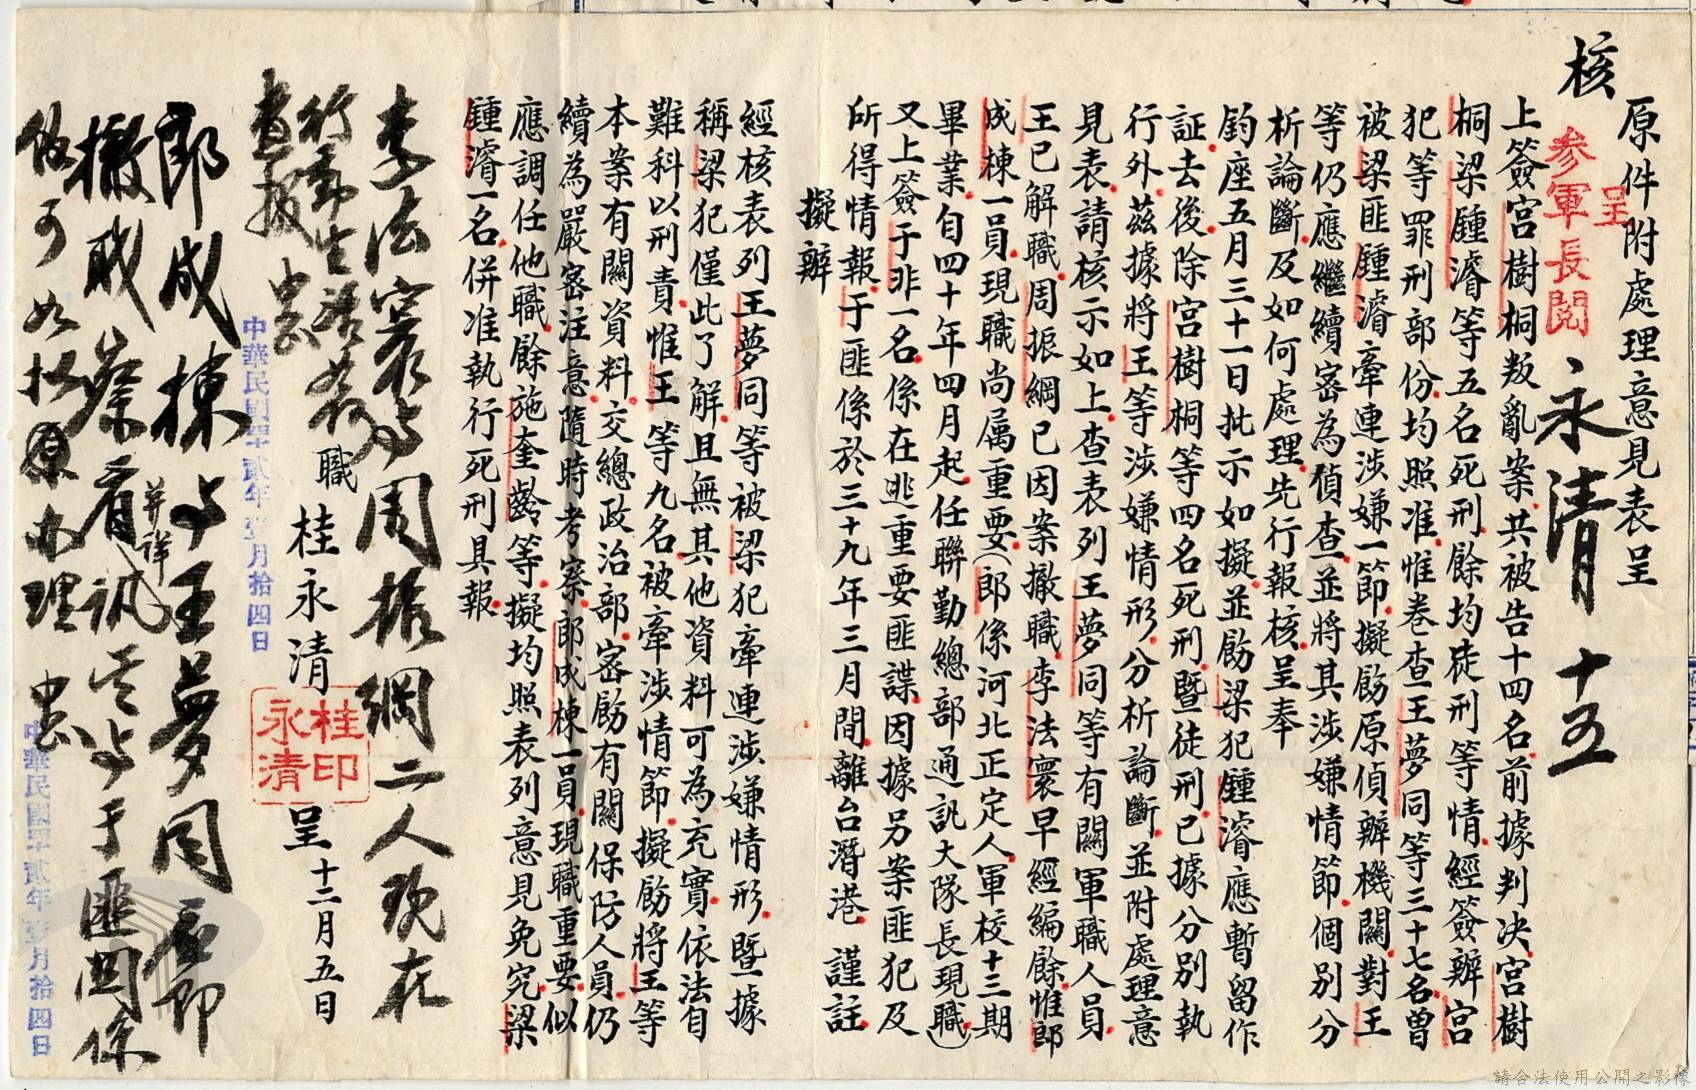 核
原件附處理意見表呈
呈
參軍長閱
永清 十五
上簽宮樹桐叛亂案共被告十四名前據判決宮樹
桐梁鍾濬等五名死刑餘均徒刑等情經簽辦宮
犯等罪刑部份均照准惟卷查王夢同等三十七名曾
被梁匪鍾濬牽連涉嫌一節擬飭原偵辦機關對王
等仍應繼續密為偵查並將其涉嫌情節個別分
析論斷及如何處理先行報核呈奉
鈞座五月三十一日批示如擬並飭梁犯鍾濬應暫留作
証去後除宮樹桐等四名死刑暨徒刑已據分別執
行外茲據將王等涉嫌情形分析論斷並附處理意
見表請核示如上查表列王夢同等有關軍職人員
王已解職周振綱已因案撤職李法寰早經編餘惟郎
成棟一員現職尚屬重要(郎係河北正定人軍校十三期
畢業自四十年四月起任聯勤總部通訊大隊長現職)
又上簽于非一名係在逃重要匪諜因據另案匪犯及
所得情報于匪係於三十九年三月間離台潛港 謹註
擬辦
經核表列王夢同等被梁犯牽連涉嫌情形暨據
稱梁犯僅此了解且無其他資料可為充實依法自
難科以刑責惟王等九名被牽涉情節擬飭將王等
本案有關資料交總政治部密飭有關保防人員仍
續為嚴密注意隨時考察郎成棟一員現職重要似
應調任他職餘施奎齡等擬均照表列意見免究梁
鍾濬一名併准執行死刑具報
職 桂永清 呈 十二月五日
桂永清印
李法寰與周振綱二人現在
行為生活如何
查報 中正
中華民國四十貳年壹月拾四日
郎成棟與王夢同應即
撤職察看并詳訊其與于匪關係
餘可如擬原办理 中正
中華民國四十貳年壹月拾四日
請合法使用公開之影像